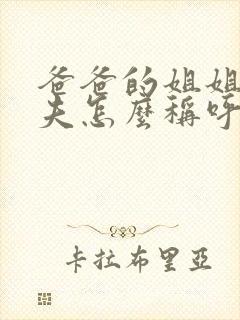 爸爸的姐姐
夫怎麼稱呼
卡拉布里亞